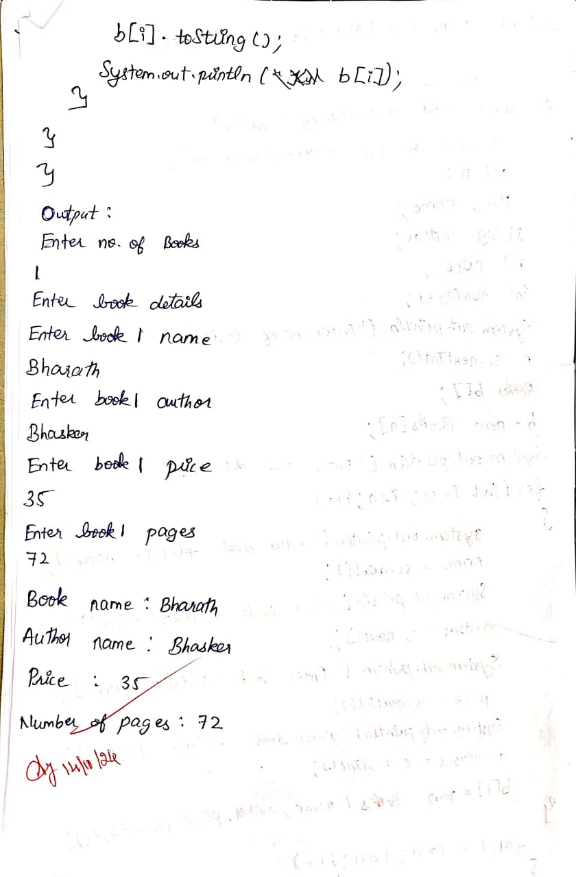 b[i].toString();
System.out.println(b[i]);
}
}
}
Output :
Enter no. of Books
1
Enter book details
Enter book 1 name
Bharath
Enter book1 author
Bhasker
Enter book 1 price
35
Enter book1 pages
72
Book name : Bharath
Author name : Bhasker
Price : 35
Number of pages : 72